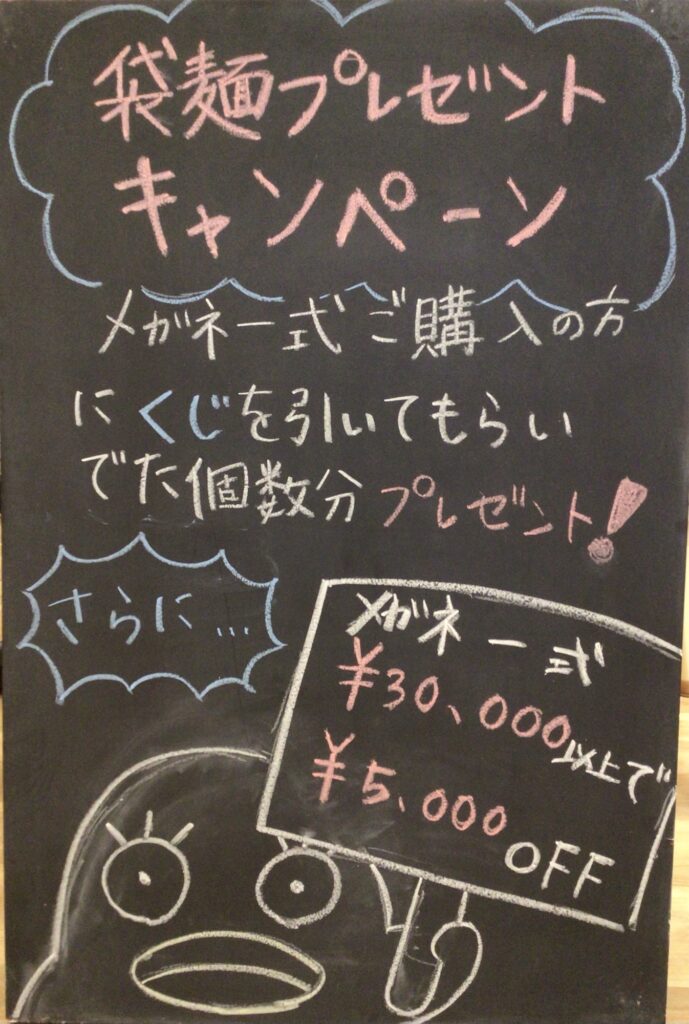 袋麺プレゼント
キャンペーン
メガネ一式ご購入の方
にくじを引いてもらい
でた個数分プレゼント!
さらに...
メガネ一式
¥30、000以上で
¥5、000
OFF